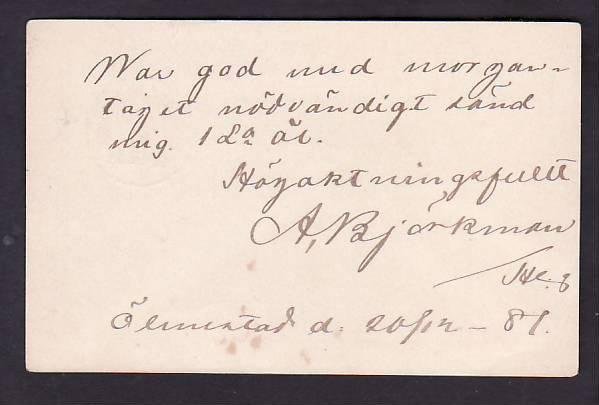 War god med morgon-
tåget nödvändigt sänd
mig. 1 La öl.
Högaktningsfullt
A, Björkman
Ölmestad d. 20/12 - 87.